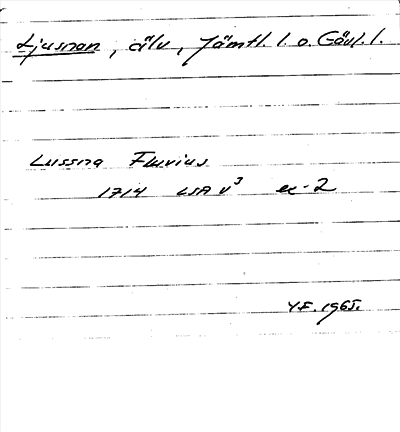 Ljusnan, älv, Jämtl. l. o. Gävl. l.
Lussna Fluvius
1714 LSA V³ ex-2
Y.F. 1965.